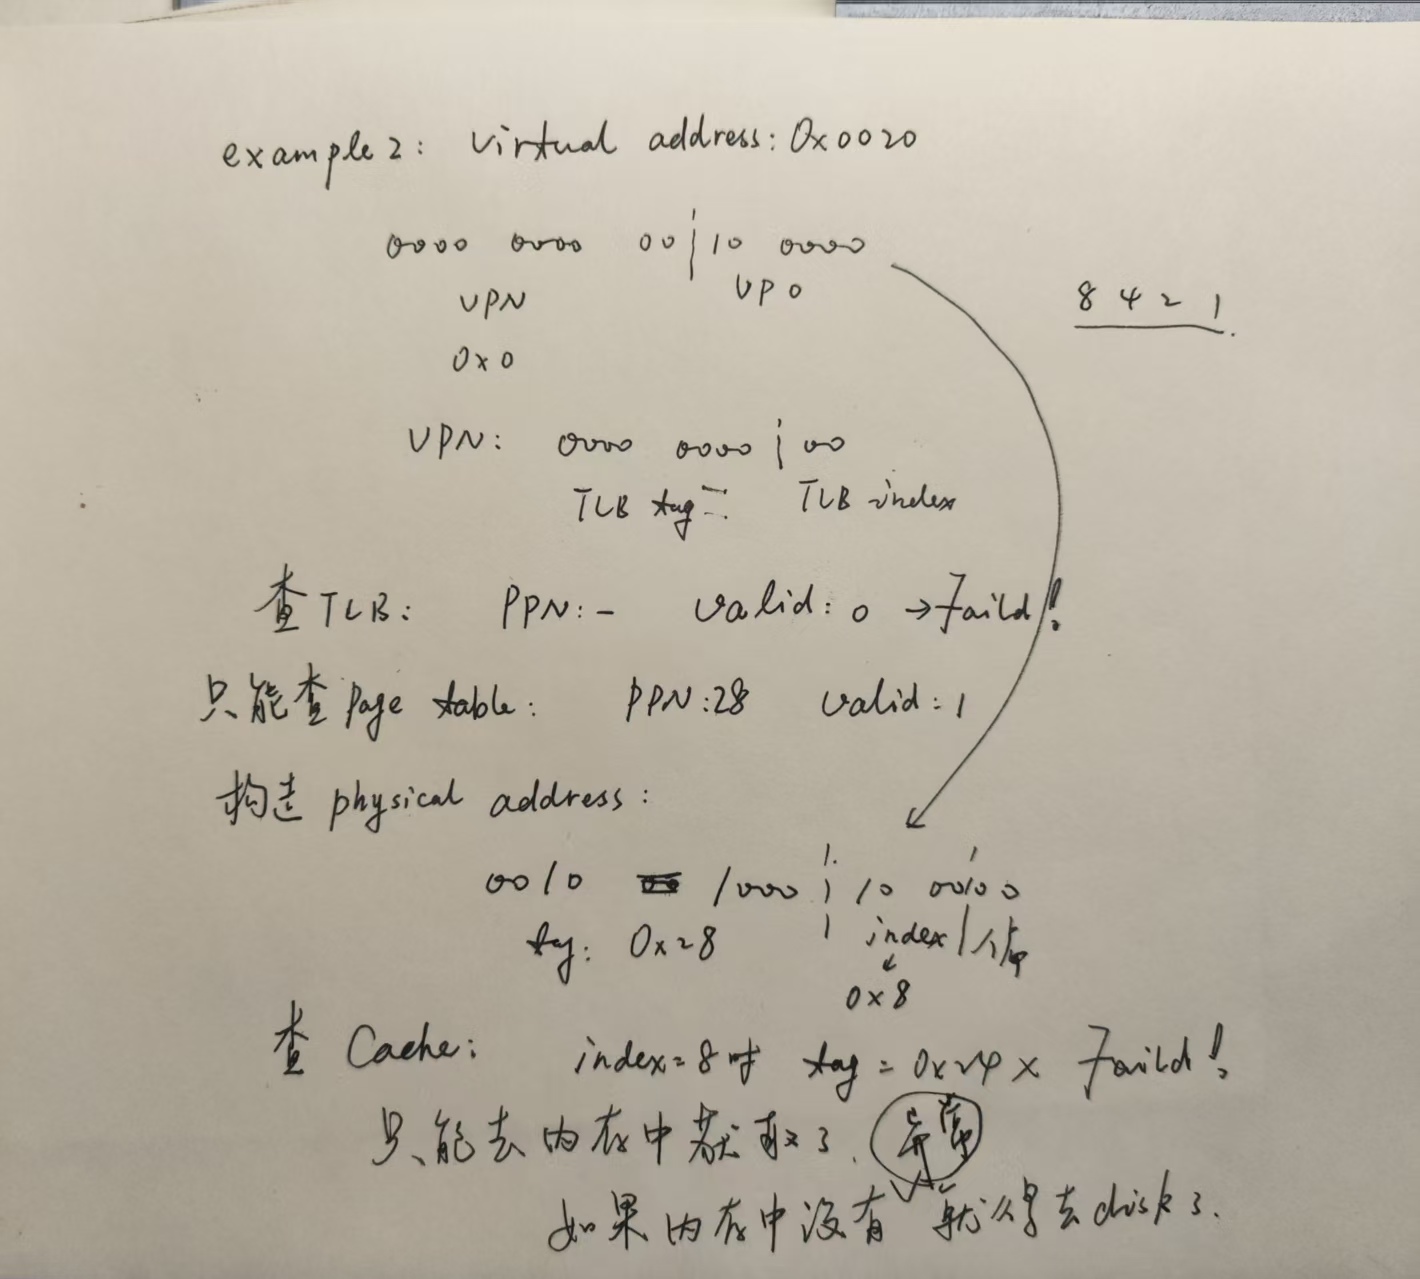 example 2: virtual address: 0x0020
0000 0000 00 | 10 0000
VPN VPO
8 4 2 1
0x0
VPN: 0000 0000 | 00
TLB tag TLB index
查TLB: PPN: - valid: 0 → Faild!
只能查 page table: PPN: 28 valid: 1
构造 physical address:
0010 1000 | 10 00|00
tag: 0x28 index | 偏
0x8
查 Cache: index = 8时 tag = 0x24 × Faild!
只能去内存中获取了. 异常
如果内存中没有 就得去disk了.